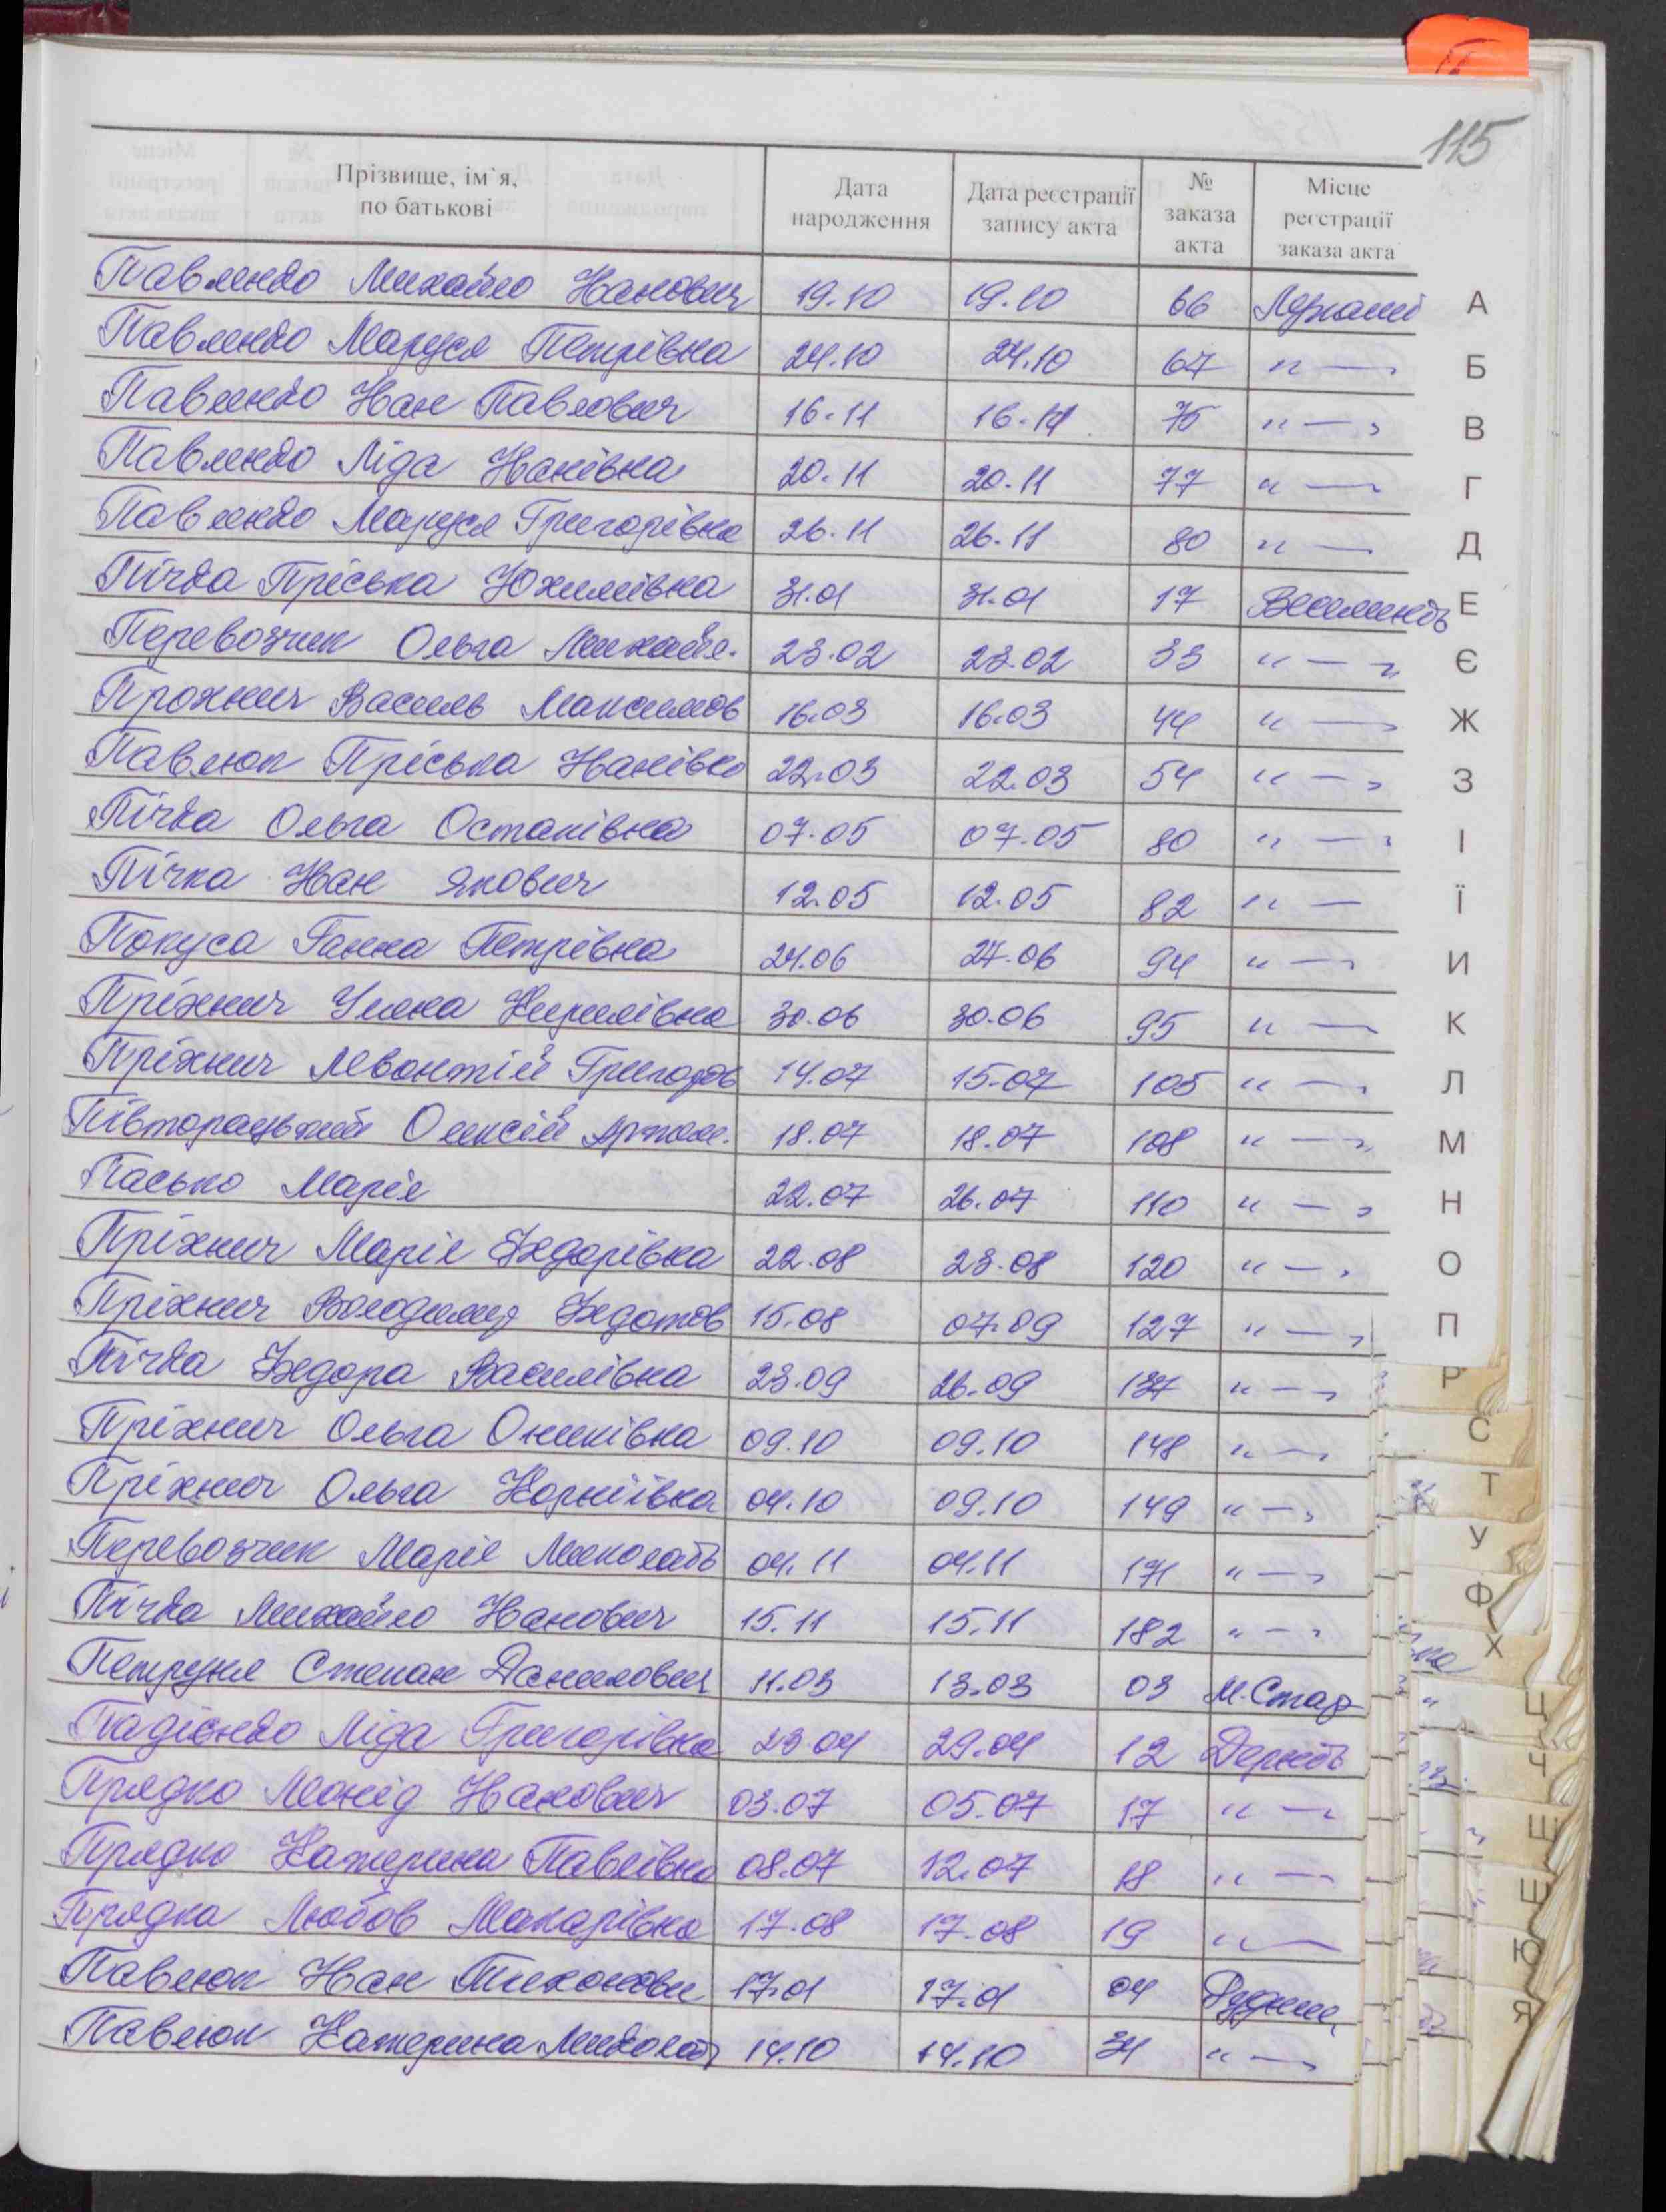 115
Прізвище, ім'я, по батькові | Дата народження | Дата реєстрації запису акта | № заказа акта | Місце реєстрації заказа акта
Павленко Михайло Іванович 19.10 19.10 66
Павленко Маруся Петрівна 24.10 24.10 67 "—
Павленко Іван Павлович 16.11 16.11 75 "—"
Павленко Ліда Іванівна 20.11 20.11 77 "—
Павленко Маруся Григорівна 26.11 26.11 80 "—
Пічка Пріська Юхимівна 31.01 31.01 17
Перевозчик Ольга Михайл. 23.02 23.02 33 "—"
Пріхнич Василь Максимов 16.03 16.03 44 "—
Павлюк Пріська Іванівна 22.03 22.03 54 "—"
Пічка Ольга Остапівна 07.05 07.05 80 "—"
Пічка Іван Якович 12.05 12.05 82 "—
Покуса Ганна Петрівна 24.06 24.06 94 "—
Пріхнич Уляна Кирилівна 30.06 30.06 95 "—
Пріхнич Левонтій Григоров 14.07 15.07 105 "—
Півторацький Олексій Артем. 18.07 18.07 108 "—"
Пасько Марія 22.07 26.07 110 "—"
Пріхнич Марія Федорівна 22.08 23.08 120 "—"
Пріхнич Володимир Федотов 15.08 07.09 127 "—"
Пічка Федора Василівна 23.09 26.09 137 "—"
Пріхнич Ольга Оникіївна 09.10 09.10 148 "—
Пріхнич Ольга Корніївна 04.10 09.10 149 "—"
Перевозчик Марія Миколаїв 04.11 04.11 171 "—"
Пічка Михайло Іванович 15.11 15.11 182 "—"
Петруня Степан Данилович 11.03 13.03 03 М.Стар
Падієнко Ліда Григорівна 23 04 29.04 12
Прядко Леонід Іванович 03.07 05.07 17 "—
Прядко Катерина Павлівна 08.07 12.07 18 "—
Прядка Любов Макарівна 17.08 17.08 19 "—
Павлюк Іван Тихонови 17.01 17.01 04
Павлюк Катерина Миколаїв 14.10 14.10 31 "—"
А
Б
В
Г
Д
Е
Є
Ж
З
І
Ї
И
К
Л
М
Н
О
П
Р
С
Т
У
Ф
Х
Ц
Ч
Ш
Щ
Ю
Я